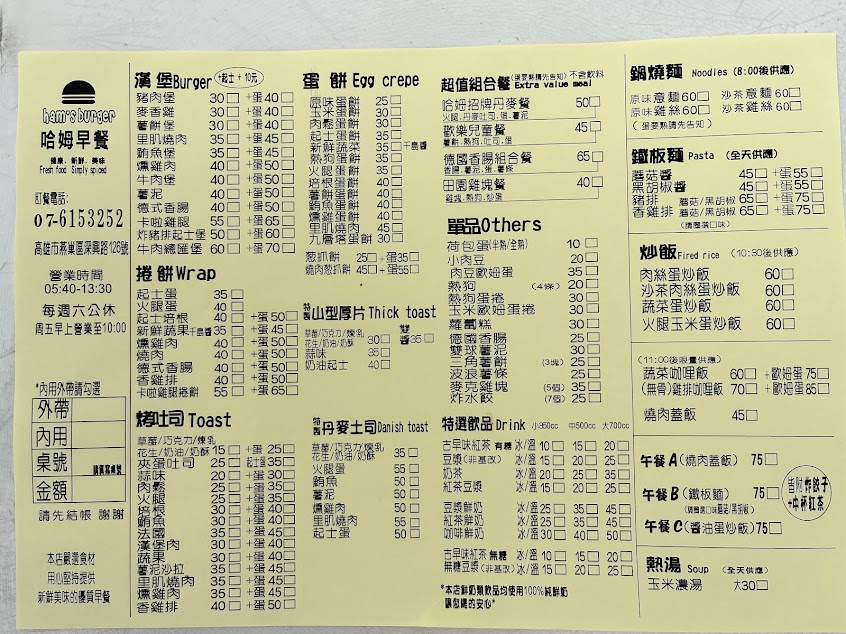 ham's burger
哈姆早餐
健康、新鮮、美味
Fresh food Simply spiced
訂餐電話:
07-6153252
高雄市燕巢區深興路126號
營業時間
05:40-13:30
每週六公休
周五早上營業至10:00
*內用外帶請勾選
外帶
內用
桌號
金額
請先結帳 謝謝
本店嚴選食材
用心堅持提供
新鮮美味的優質早餐
漢堡Burger +起士+10元
豬肉堡 30□ +蛋40□
麥香雞 30□ +蛋40□
薯餅堡 30□ +蛋40□
里肌燒肉 35□ +蛋45□
鮪魚堡 35□ +蛋45□
燻雞肉 40□ +蛋50□
牛肉堡 40□ +蛋50□
薯泥 40□ +蛋50□
德式香腸 40□ +蛋50□
卡啦雞腿 55□ +蛋65□
炸豬排起士堡 50□ +蛋60□
牛肉總匯堡 60□ +蛋70□
捲餅Wrap
起士蛋 35□
火腿蛋 40□
起士培根 40□ +蛋50□
新鮮蔬果千島醬 35□ +蛋45□
燻雞肉 40□ +蛋50□
燒肉 40□ +蛋50□
德式香腸 40□ +蛋50□
香雞排 40□ +蛋50□
卡啦雞腿捲餅 55□ +蛋65□
烤吐司Toast
草莓/巧克力/煉乳
花生/奶油/奶酥 15□ +蛋25□
夾蛋吐司 25□ 起士蛋35□
蒜味 20□ +蛋30□
肉鬆 25□ +蛋35□
火腿 25□ +蛋35□
培根 30□ +蛋40□
鮪魚 30□ +蛋40□
法國 35□ +蛋45□
漢堡肉 30□ +蛋40□
蔬果 30□ +蛋40□
薯泥沙拉 35□ +蛋45□
里肌燒肉 35□ +蛋45□
燻雞肉 35□ +蛋45□
香雞排 40□ +蛋50□
蛋餅Egg crepe
原味蛋餅 25□
玉米蛋餅 30□
肉鬆蛋餅 30□
起士蛋餅 30□
新鮮蔬菜 35□千島醬
熱狗蛋餅 30□
火腿蛋餅 30□
培根蛋餅 40□
薯餅蛋餅 40□
鮪魚蛋餅 40□
燻雞蛋餅 40□
里肌燒肉 45□
九層塔蛋餅 30□
蔥抓餅 25□+蛋35□
燒肉蔥抓餅 45□+蛋55□
特製山型厚片Thick toast
草莓/巧克力/煉乳
花生/奶油/奶酥 30□ 雙醬35□
蒜味 35□
奶油起士 40□
特製丹麥土司Danish toast
草莓/巧克力/煉乳
花生/奶油/奶酥 35□
火腿蛋 55□
鮪魚 50□
薯泥 50□
燻雞肉 50□
里肌燒肉 55□
起士蛋 50□
超值組合餐(蛋要熟請先告知)不含飲料
Extra value meal
哈姆招牌丹麥餐 50□
火腿.丹麥吐司.蛋.薯泥
歡樂兒童餐 45□
薯餅.熱狗.吐司.蛋
德國香腸組合餐 65□
香腸.薯泥.蛋.薯條
田園雞塊餐 40□
雞塊.熱狗.炒蛋
單品Others
荷包蛋(半熟/全熟) 10□
小肉豆 20□
肉豆歐姆蛋 35□
熱狗 (4條) 20□
熱狗蛋捲 30□
玉米歐姆蛋捲 30□
蘿蔔糕 30□
德國香腸 25□
雙球薯泥 30□
三角薯餅 (3塊) 25□
波浪薯條 25□
麥克雞塊 (5個) 35□
炸水餃 (7個) 25□
特選飲品Drink 小350cc 中500cc 大700cc
古早味紅茶 有糖 冰/溫 10□ 15□ 20□
豆漿(非基改) 冰/溫 15□ 20□ 25□
奶茶 冰/溫 15□ 20□ 25□
紅茶豆漿 冰/溫 15□ 20□ 25□
豆漿鮮奶 冰/溫 25□ 35□ 45□
紅茶鮮奶 冰/溫 25□ 35□ 45□
咖啡鮮奶 冰/溫 30□ 40□ 50□
古早味紅茶 無糖 冰/溫 10□ 15□ 20□
無糖豆漿(非基改) 冰/溫 15□ 20□ 25□
*本店鮮奶類飲品均使用100%純鮮奶
讓您喝的安心*
鍋燒麵 Noodles (8:00後供應)
原味意麵60□ 沙茶意麵60□
原味雞絲60□ 沙茶雞絲60□
(蛋要熟請先告知)
鐵板麵 Pasta (全天供應)
蘑菇醬 45□+蛋55□
黑胡椒醬 45□+蛋55□
豬排 蘑菇/黑胡椒 65□+蛋75□
香雞排 蘑菇/黑胡椒 65□+蛋75□
(請圈選口味)
炒飯Fired rice (10:30後供應)
肉絲蛋炒飯 60□
沙茶肉絲蛋炒飯 60□
蔬菜蛋炒飯 60□
火腿玉米蛋炒飯 60□
(11:00後限量供應)
蔬菜咖哩飯 60□ +歐姆蛋75□
(無骨)雞排咖哩飯 70□ +歐姆蛋85□
燒肉蓋飯 45□
午餐A(燒肉蓋飯) 75□
午餐B(鐵板麵) 75□
(請圈選口味蘑菇/黑胡椒)
午餐C(醬油蛋炒飯)75□
皆附炸餃子
+中杯紅茶
熱湯 Soup (全天供應)
玉米濃湯 大30□